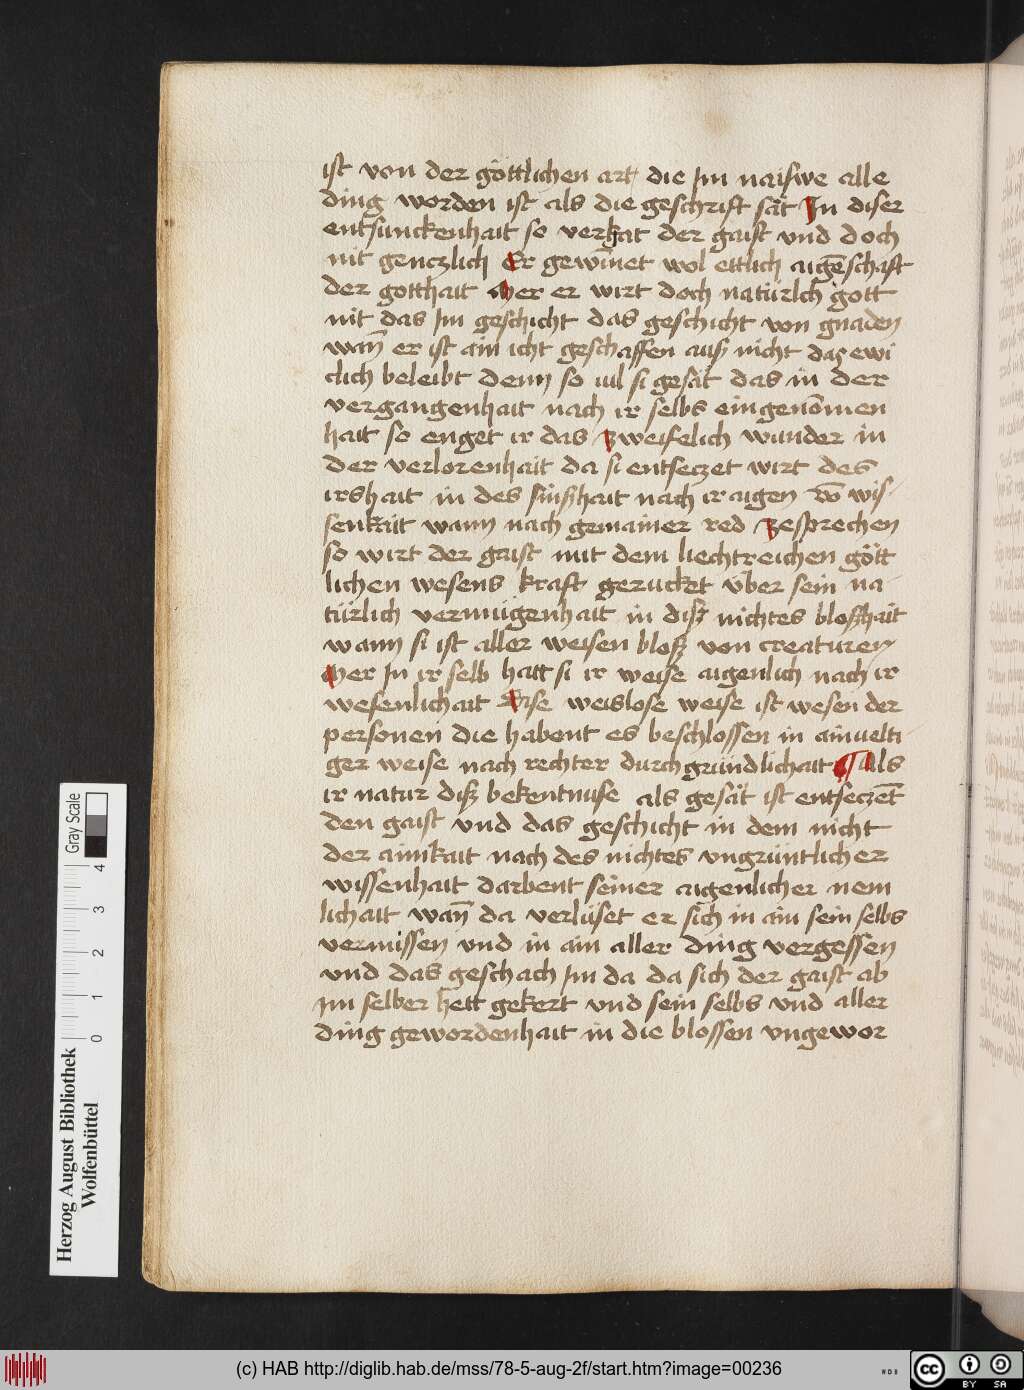 ist von der göttlichen art die Im naiswe alle
ding worden ist als die geschrift sät In diser
entsunckenhait so vergat der gaist vnd doch
nit genczlich Er gewinnet wol ettlich aigēschaft
der gotthait Aber er wirt doch natürlich gott
nit das Im geschicht das geschicht von gnaden
wan̄ er ist ain icht geschaffen auß nicht das ewi
clich beleibt denn so uil si gesät das in der
vergangenhait nach ir selbs eingenōmen
hait so enget ir das zweifelich wunder in
der verlorenhait da si entseczet wirt des
irshait in des sinßhait nach ir aigen vō wis
senkait wann nach gemainer red zesprechen
so wirt der gaist mit dem liechtreichen gött
lichen wesens kraft gerucket über sein na
türlich vermügenhait in diß nichtes bloßhait
wann si ist aller weisen bloß von creaturen
Aber In ir selb hatt si ir weise aigenlich nach ir
wesenlichait Dise weislose weise ist wesen der
personen die habent es beschlossen in ainuelti
ger weise nach rechter durchgründlichait ¶ Als
ir natur diß bekentnuse als gesät ist entseczēt
den gaist vnd das geschicht in dem nicht
der ainikait nach des nichtes vngrüntlicher
wissenhait darbent seiner aigenlicher nem
lichait wan̄ da verlüset er sich in ain sein selbs
vermissen vnd in ain aller ding vergessen
vnd das geschach Im da da sich der gaist ab
Im selber hett gekert vnd sein selbs vnd aller
ding gewordenhait in die blossen vngewor
Herzog August Bibliothek
Wolfenbüttel
Gray Scale
0 1 2 3 4
(c) HAB http://diglib.hab.de/mss/78-5-aug-2f/start.htm?image=00236
WDB
cc BY SA